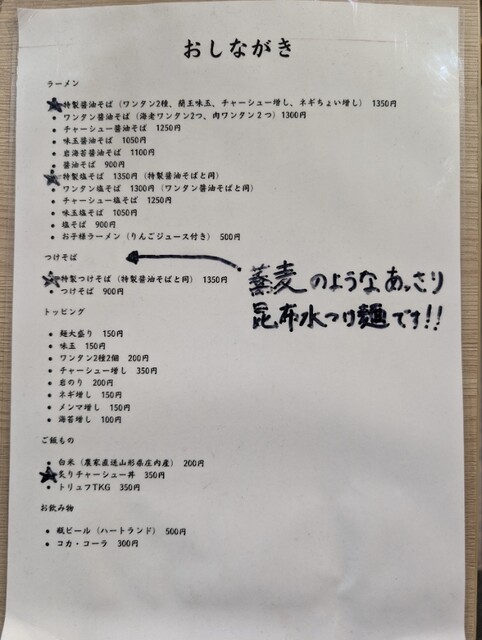 おしながき
ラーメン
★特製醤油そば（ワンタン2種、蘭王味玉、チャーシュー増し、ネギちょい増し） 1350円
• ワンタン醤油そば（海老ワンタン2つ、肉ワンタン２つ）1300円
• チャーシュー醤油そば 1250円
• 味玉醤油そば 1050円
• 岩海苔醤油そば 1100円
• 醤油そば 900円
★特製塩そば 1350円（特製醤油そばと同）
• ワンタン塩そば 1300円（ワンタン醤油そばと同）
• チャーシュー塩そば 1250円
• 味玉塩そば 1050円
• 塩そば 900円
• お子様ラーメン（りんごジュース付き） 500円
つけそば
★特製つけそば（特製醤油そばと同） 1350円
• つけそば 900円
蕎麦のようなあっさり
昆布水つけ麺です!!
トッピング
• 麺大盛り 150円
• 味玉 150円
• ワンタン2種2個 200円
• チャーシュー増し 350円
• 岩のり 200円
• ネギ増し 150円
• メンマ増し 150円
• 海苔増し 100円
ご飯もの
• 白米（農家直送山形県庄内産） 200円
★炙りチャーシュー丼 350円
• トリュフTKG 350円
お飲み物
• 瓶ビール（ハートランド） 500円
• コカ・コーラ 300円